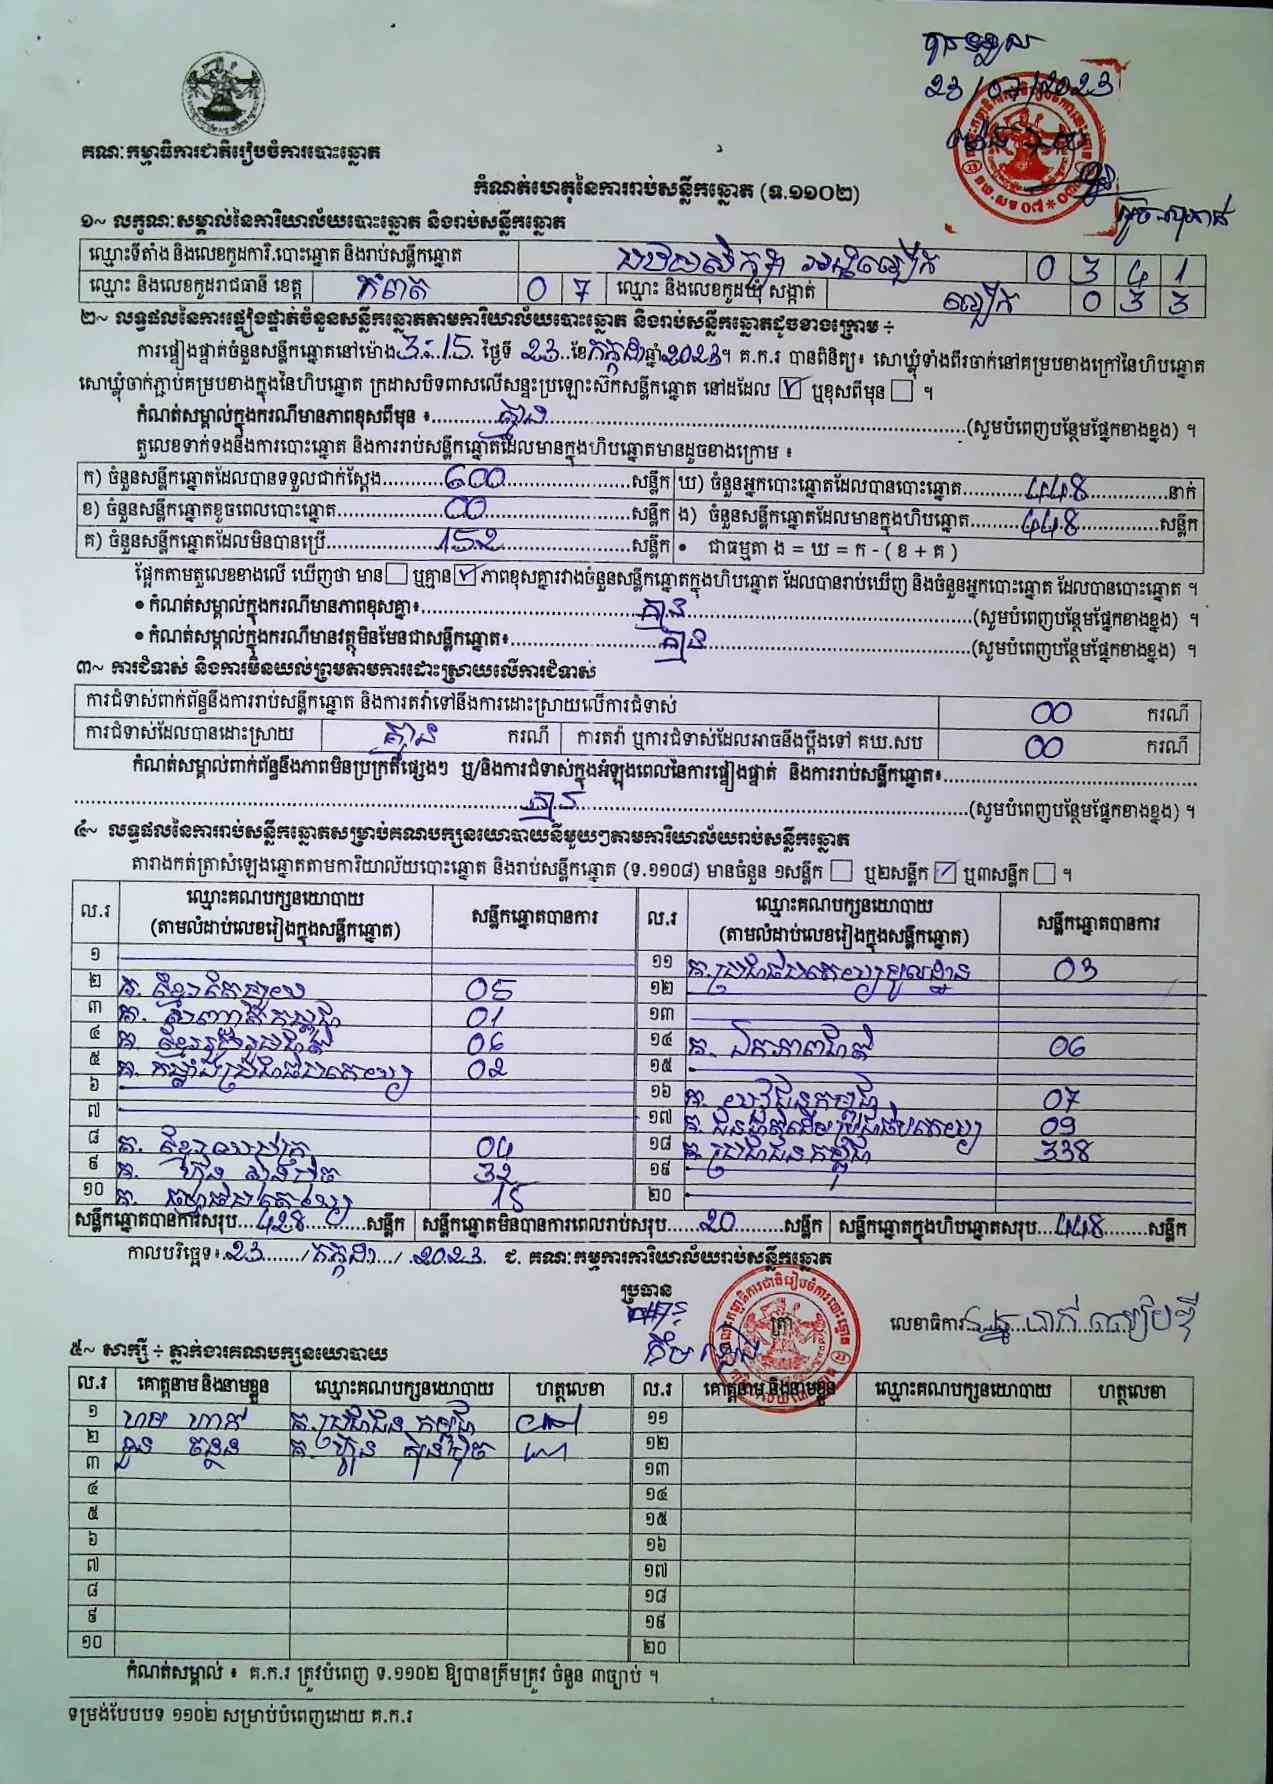 បានទទួល
23/07/2023
គណៈកម្មាធិការជាតិរៀបចំការបោះឆ្នោត
កំណត់ហេតុនៃការរាប់សន្លឹកឆ្នោត (ទ.១១០២)
១~ លក្ខណៈសម្គាល់នៃការិយាល័យបោះឆ្នោត និងរាប់សន្លឹកឆ្នោត
ឈ្មោះទីតាំង និងលេខកូដការិ.បោះឆ្នោត និងរាប់សន្លឹកឆ្នោត បឋមសិក្សា អង្គល្បើក 0 3 4 1
ឈ្មោះ និងលេខកូដរាជធានី ខេត្ត កំពត 0 7 ឈ្មោះ និងលេខកូដឃុំ សង្កាត់ ល្បើក 0 3 3
២~ លទ្ធផលនៃការផ្ទៀងផ្ទាត់ចំនួនសន្លឹកឆ្នោតតាមការិយាល័យបោះឆ្នោត និងរាប់សន្លឹកឆ្នោតដូចខាងក្រោម ÷
ការផ្ទៀងផ្ទាត់ចំនួនសន្លឹកឆ្នោតនៅម៉ោង 3:15 ថ្ងៃទី 23 ខែកក្កដាឆ្នាំ2023។ គ.ក.រ បានពិនិត្យ៖ សោឃ្លុំទាំងពីរចាក់នៅគម្របខាងក្រៅនៃហិបឆ្នោត
សោឃ្លុំចាក់ភ្ជាប់គម្របខាងក្នុងនៃហិបឆ្នោត ក្រដាសបិទពាសលើសន្ទះប្រឡោះស៊កសន្លឹកឆ្នោត នៅដដែល ☑ ឬខុសពីមុន ☐ ។
កំណត់សម្គាល់ក្នុងករណីមានភាពខុសពីមុន ៖ គ្មាន (សូមបំពេញបន្ថែមផ្នែកខាងខ្នង) ។
តួលេខទាក់ទងនឹងការបោះឆ្នោត និងការរាប់សន្លឹកឆ្នោតដែលមានក្នុងហិបឆ្នោតមានដូចខាងក្រោម ៖
ក) ចំនួនសន្លឹកឆ្នោតដែលបានទទួលជាក់ស្តែង 600 សន្លឹក ឃ) ចំនួនអ្នកបោះឆ្នោតដែលបានបោះឆ្នោត 448 នាក់
ខ) ចំនួនសន្លឹកឆ្នោតខូចពេលបោះឆ្នោត 00 សន្លឹក ង) ចំនួនសន្លឹកឆ្នោតដែលមានក្នុងហិបឆ្នោត 448 សន្លឹក
គ) ចំនួនសន្លឹកឆ្នោតដែលមិនបានប្រើ 152 សន្លឹក • ជាធម្មតា ង = ឃ = ក - ( ខ + គ )
ផ្អែកតាមតួលេខខាងលើ ឃើញថា មាន ☐ ឬគ្មាន ☑ ភាពខុសគ្នារវាងចំនួនសន្លឹកឆ្នោតក្នុងហិបឆ្នោត ដែលបានរាប់ឃើញ និងចំនួនអ្នកបោះឆ្នោត ដែលបានបោះឆ្នោត ។
• កំណត់សម្គាល់ក្នុងករណីមានភាពខុសគ្នា៖ គ្មាន (សូមបំពេញបន្ថែមផ្នែកខាងខ្នង) ។
• កំណត់សម្គាល់ក្នុងករណីមានវត្ថុមិនមែនជាសន្លឹកឆ្នោត៖ គ្មាន (សូមបំពេញបន្ថែមផ្នែកខាងខ្នង) ។
៣~ ការជំទាស់ និងការមិនយល់ព្រមតាមការដោះស្រាយលើការជំទាស់
ការជំទាស់ពាក់ព័ន្ធនឹងការរាប់សន្លឹកឆ្នោត និងការតវ៉ាទៅនឹងការដោះស្រាយលើការជំទាស់ 00 ករណី
ការជំទាស់ដែលបានដោះស្រាយ គ្មាន ករណី ការតវ៉ា ឬការជំទាស់ដែលអាចនឹងប្តឹងទៅ គឃ.សប 00 ករណី
កំណត់សម្គាល់ពាក់ព័ន្ធនឹងភាពមិនប្រក្រតីផ្សេងៗ ឬ/និងការជំទាស់ក្នុងអំឡុងពេលនៃការផ្ទៀងផ្ទាត់ និងការរាប់សន្លឹកឆ្នោត៖
គ្មាន (សូមបំពេញបន្ថែមផ្នែកខាងខ្នង) ។
៤~ លទ្ធផលនៃការរាប់សន្លឹកឆ្នោតសម្រាប់គណបក្សនយោបាយនីមួយៗតាមការិយាល័យរាប់សន្លឹកឆ្នោត
តារាងកត់ត្រាសំឡេងឆ្នោតតាមការិយាល័យបោះឆ្នោត និងរាប់សន្លឹកឆ្នោត (ទ.១១០៨) មានចំនួន ១សន្លឹក ☐ ឬ២សន្លឹក ☑ ឬ៣សន្លឹក ☐ ។
ល.រ ឈ្មោះគណបក្សនយោបាយ (តាមលំដាប់លេខរៀងក្នុងសន្លឹកឆ្នោត) សន្លឹកឆ្នោតបានការ ល.រ ឈ្មោះគណបក្សនយោបាយ (តាមលំដាប់លេខរៀងក្នុងសន្លឹកឆ្នោត) សន្លឹកឆ្នោតបានការ
១ ១១ គ. ប្រជាធិបតេយ្យមូលដ្ឋាន 03
២ គ. ខ្មែរតែមួយ 05 ១២
៣ គ. សញ្ជាតិកម្ពុជា 01 ១៣
៤ គ. ខ្មែររួបរួមជាតិ 06 ១៤ គ. ឯកភាពជាតិ 06
៥ គ. កម្លាំងប្រជាធិបតេយ្យ 02 ១៥
៦ ១៦ គ. យុវជនកម្ពុជា 07
៧ ១៧ គ. ជនជាតិដើមប្រជាធិបតេយ្យ 09
៨ គ. ខ្មែរអភិរក្ស 04 ១៨ គ. ប្រជាជនកម្ពុជា 338
៩ គ. ហ៊្វុនស៊ិនប៉ិច 32 ១៩
១០ គ. ធម្មាធិបតេយ្យ 15 ២០
សន្លឹកឆ្នោតបានការសរុប 428 សន្លឹក សន្លឹកឆ្នោតមិនបានការពេលរាប់សរុប 20 សន្លឹក សន្លឹកឆ្នោតក្នុងហិបឆ្នោតសរុប 448 សន្លឹក
កាលបរិច្ឆេទ៖ 23/កក្កដា/2023 ជ. គណៈកម្មការការិយាល័យរាប់សន្លឹកឆ្នោត
ប្រធាន
ត្រា
លេខាធិការ
៥~ សាក្សី ÷ ភ្នាក់ងារគណបក្សនយោបាយ
ល.រ គោត្តនាម និងនាមខ្លួន ឈ្មោះគណបក្សនយោបាយ ហត្ថលេខា ល.រ គោត្តនាម និងនាមខ្លួន ឈ្មោះគណបក្សនយោបាយ ហត្ថលេខា
១ គ. ប្រជាជន កម្ពុជា ១១
២ គ. ហ៊្វុន ស៊ិនប៉ិច ១២
៣ ១៣
៤ ១៤
៥ ១៥
៦ ១៦
៧ ១៧
៨ ១៨
៩ ១៩
១០ ២០
កំណត់សម្គាល់ ៖ គ.ក.រ ត្រូវបំពេញ ទ.១១០២ ឱ្យបានត្រឹមត្រូវ ចំនួន ៣ច្បាប់ ។
ទម្រង់បែបបទ ១១០២ សម្រាប់បំពេញដោយ គ.ក.រ